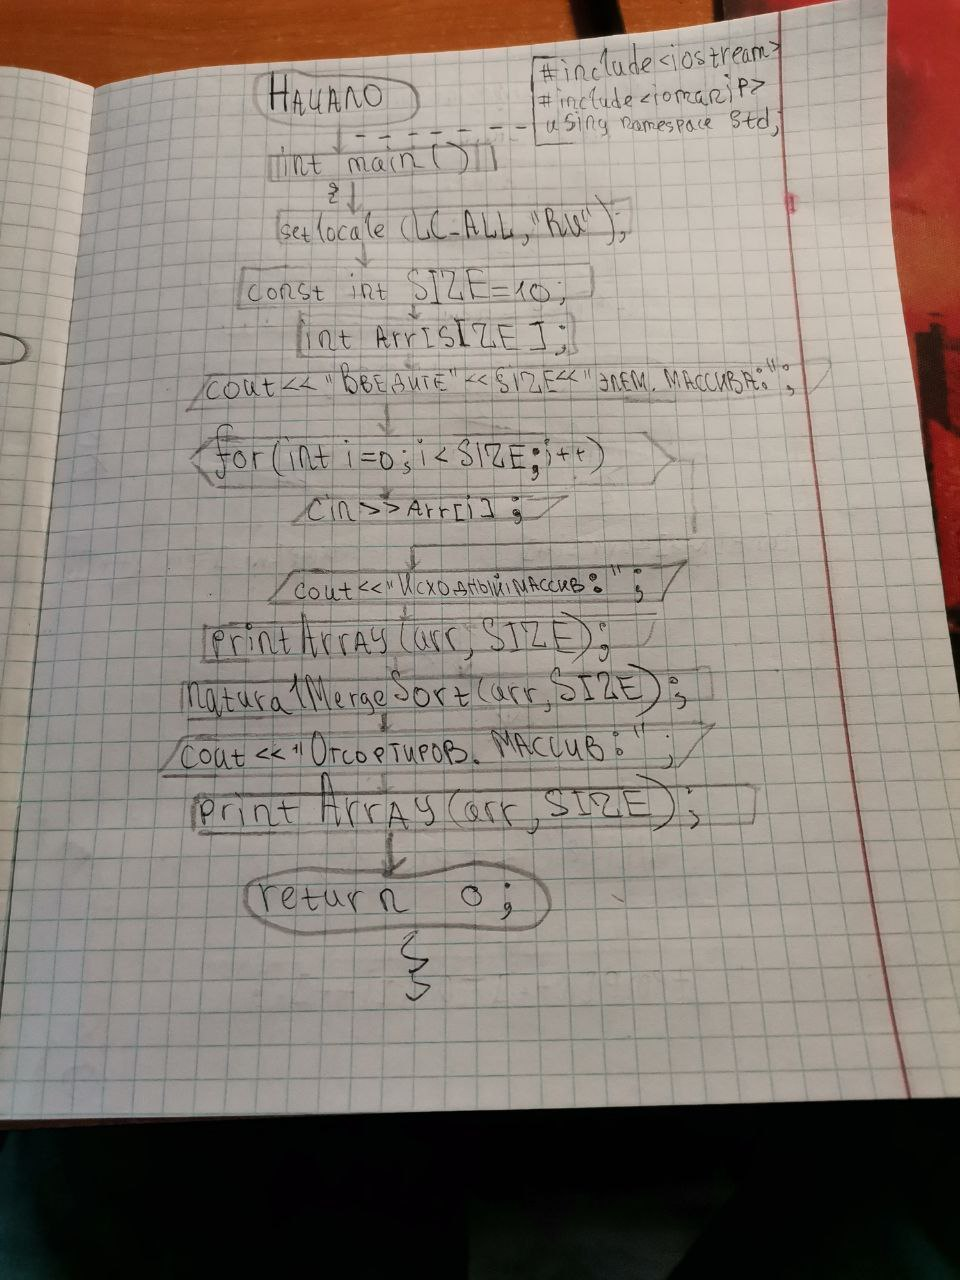 НАЧАЛО
#include<iostream>
#include<iomanip>
using namespace std;
int main()
{
setlocale (LC_ALL, "RU");
const int SIZE=10;
int Arr[SIZE];
cout<<"ВВЕДИТЕ"<<SIZE<<"ЭЛЕМ. МАССИВА:";
for(int i=0; i<SIZE; i++)
cin>>Arr[i];
cout<<"Исходный массив:";
printArray(arr, SIZE);
naturalMergeSort(arr, SIZE);
cout<<"Отсортиров. массив:";
printArray(arr, SIZE);
return 0;
}